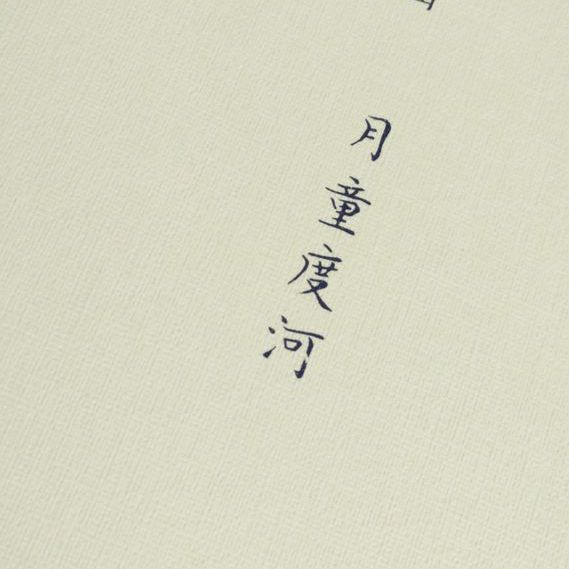 月童度河